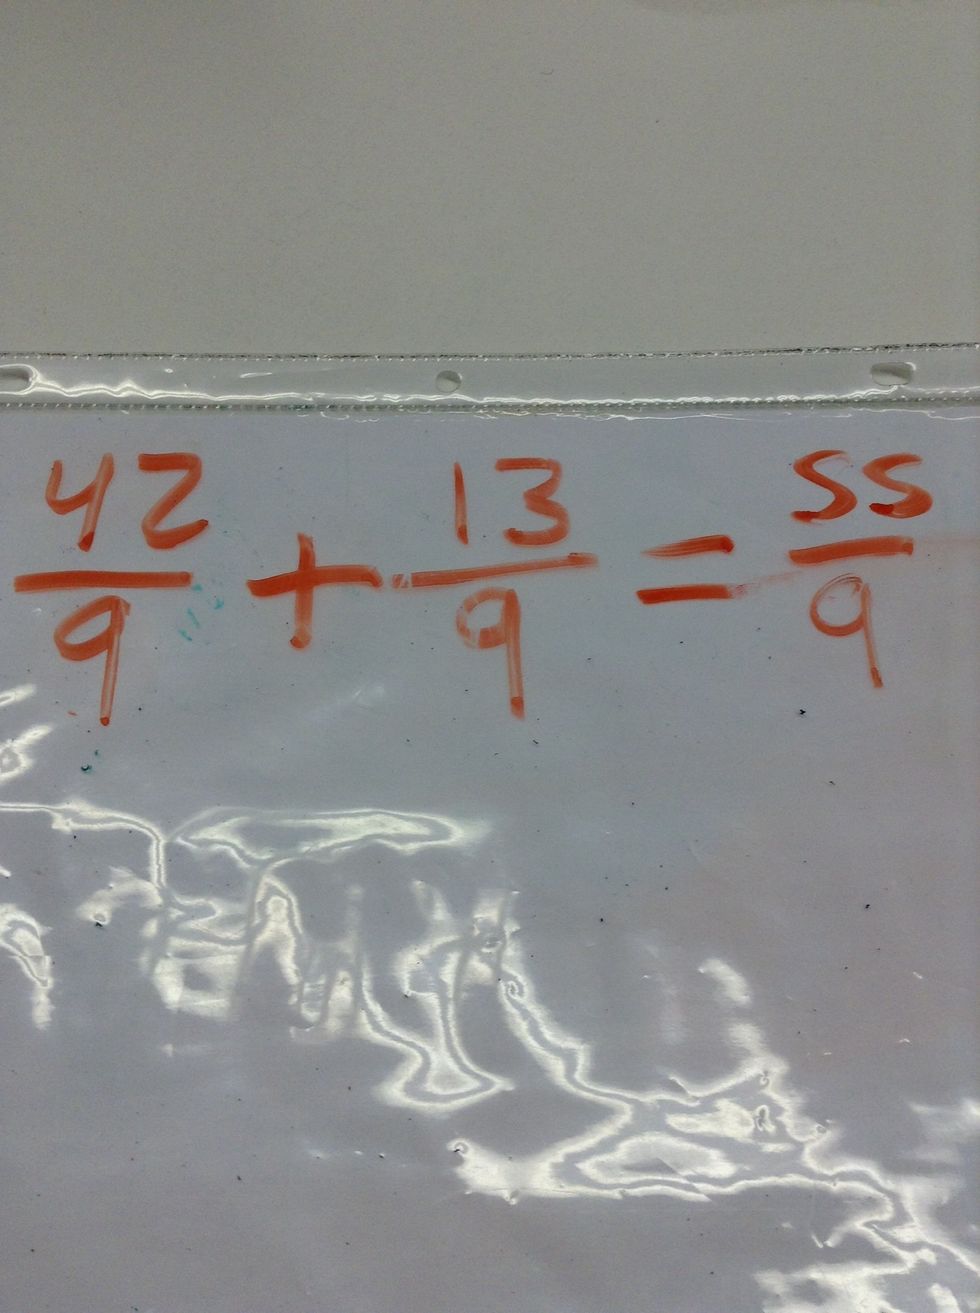 42/9 + 13/9 = 55/9